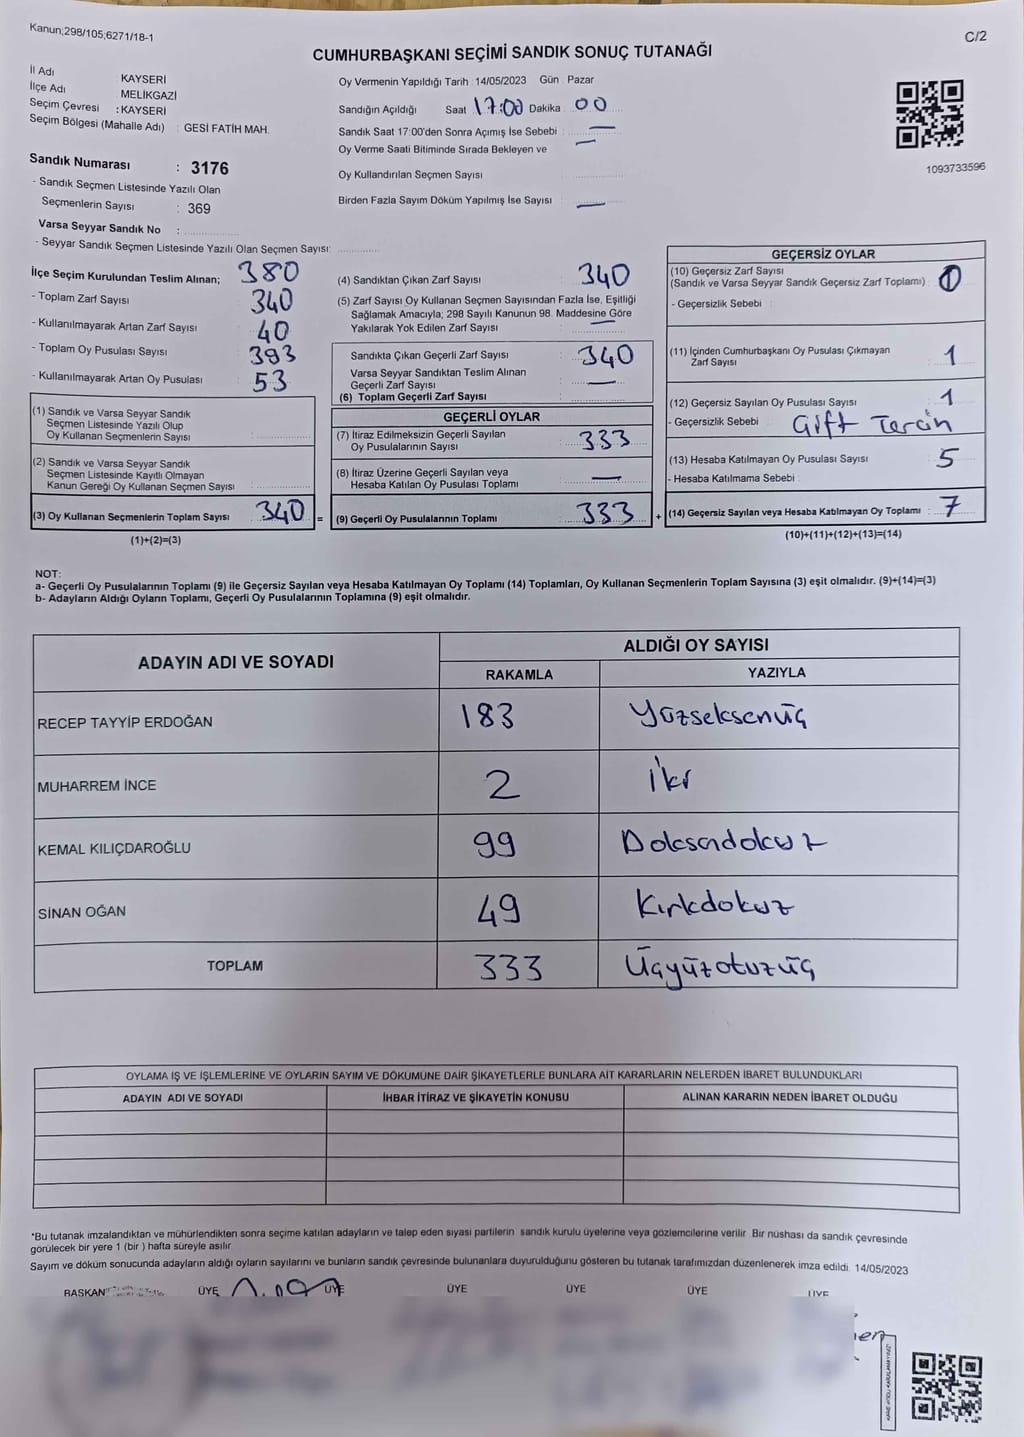 Kanun;298/105;6271/18-1
C/2
CUMHURBAŞKANI SEÇİMİ SANDIK SONUÇ TUTANAĞI
İl Adı KAYSERİ
İlçe Adı MELİKGAZİ
Seçim Çevresi : KAYSERİ
Seçim Bölgesi (Mahalle Adı) : GESİ FATİH MAH.
Sandık Numarası : 3176
- Sandık Seçmen Listesinde Yazılı Olan
Seçmenlerin Sayısı : 369
Varsa Seyyar Sandık No :
- Seyyar Sandık Seçmen Listesinde Yazılı Olan Seçmen Sayısı:
Oy Vermenin Yapıldığı Tarih : 14/05/2023 Gün : Pazar
Sandığın Açıldığı Saat 17:00 Dakika 00
Sandık Saat 17:00'den Sonra Açımış İse Sebebi : —
Oy Verme Saati Bitiminde Sırada Bekleyen ve —
Oy Kullandırılan Seçmen Sayısı
Birden Fazla Sayım Döküm Yapılmış İse Sayısı : —
1093733596
İlçe Seçim Kurulundan Teslim Alınan; 380
- Toplam Zarf Sayısı 340
- Kullanılmayarak Artan Zarf Sayısı 40
- Toplam Oy Pusulası Sayısı 393
- Kullanılmayarak Artan Oy Pusulası 53
(1) Sandık ve Varsa Seyyar Sandık
Seçmen Listesinde Yazılı Olup
Oy Kullanan Seçmenlerin Sayısı :
(2) Sandık ve Varsa Seyyar Sandık
Seçmen Listesinde Kayıtlı Olmayan
Kanun Gereği Oy Kullanan Seçmen Sayısı :
(3) Oy Kullanan Seçmenlerin Toplam Sayısı 340 =
(1)+(2)=(3)
(4) Sandıktan Çıkan Zarf Sayısı : 340
(5) Zarf Sayısı Oy Kullanan Seçmen Sayısından Fazla İse, Eşitliği
Sağlamak Amacıyla; 298 Sayılı Kanunun 98. Maddesine Göre
Yakılarak Yok Edilen Zarf Sayısı : —
Sandıkta Çıkan Geçerli Zarf Sayısı : 340
Varsa Seyyar Sandıktan Teslim Alınan
Geçerli Zarf Sayısı : —
(6) Toplam Geçerli Zarf Sayısı :
GEÇERLİ OYLAR
(7) İtiraz Edilmeksizin Geçerli Sayılan
Oy Pusulalarının Sayısı : 333
(8) İtiraz Üzerine Geçerli Sayılan veya
Hesaba Katılan Oy Pusulası Toplamı : —
(9) Geçerli Oy Pusulalarının Toplamı : 333 +
GEÇERSİZ OYLAR
(10) Geçersiz Zarf Sayısı
(Sandık ve Varsa Seyyar Sandık Geçersiz Zarf Toplamı) : 0
- Geçersizlik Sebebi :
(11) İçinden Cumhurbaşkanı Oy Pusulası Çıkmayan
Zarf Sayısı : 1
(12) Geçersiz Sayılan Oy Pusulası Sayısı : 1
- Geçersizlik Sebebi : Çift Tercih
(13) Hesaba Katılmayan Oy Pusulası Sayısı : 5
- Hesaba Katılmama Sebebi :
(14) Geçersiz Sayılan veya Hesaba Katılmayan Oy Toplamı : 7
(10)+(11)+(12)+(13)=(14)
NOT:
a- Geçerli Oy Pusulalarının Toplamı (9) ile Geçersiz Sayılan veya Hesaba Katılmayan Oy Toplamı (14) Toplamları, Oy Kullanan Seçmenlerin Toplam Sayısına (3) eşit olmalıdır. (9)+(14)=(3)
b- Adayların Aldığı Oyların Toplamı, Geçerli Oy Pusulalarının Toplamına (9) eşit olmalıdır.
ADAYIN ADI VE SOYADI
ALDIĞI OY SAYISI
RAKAMLA YAZIYLA
RECEP TAYYİP ERDOĞAN 183 Yüzseksenüç
MUHARREM İNCE 2 İki
KEMAL KILIÇDAROĞLU 99 Doksandokuz
SİNAN OĞAN 49 Kırkdokuz
TOPLAM 333 Üçyüzotuzüç
OYLAMA İŞ VE İŞLEMLERİNE VE OYLARIN SAYIM VE DÖKÜMÜNE DAİR ŞİKAYETLERLE BUNLARA AİT KARARLARIN NELERDEN İBARET BULUNDUKLARI
ADAYIN ADI VE SOYADI İHBAR İTİRAZ VE ŞİKAYETİN KONUSU ALINAN KARARIN NEDEN İBARET OLDUĞU
*Bu tutanak imzalandıktan ve mühürlendikten sonra seçime katılan adayların ve talep eden siyasi partilerin sandık kurulu üyelerine veya gözlemcilerine verilir. Bir nüshası da sandık çevresinde
görülecek bir yere 1 (bir ) hafta süreyle asılır.
Sayım ve döküm sonucunda adayların aldığı oyların sayılarını ve bunların sandık çevresinde bulunanlara duyurulduğunu gösteren bu tutanak tarafımızdan düzenlenerek imza edildi. 14/05/2023
BAŞKAN ÜYE ÜYE ÜYE ÜYE ÜYE ÜYE